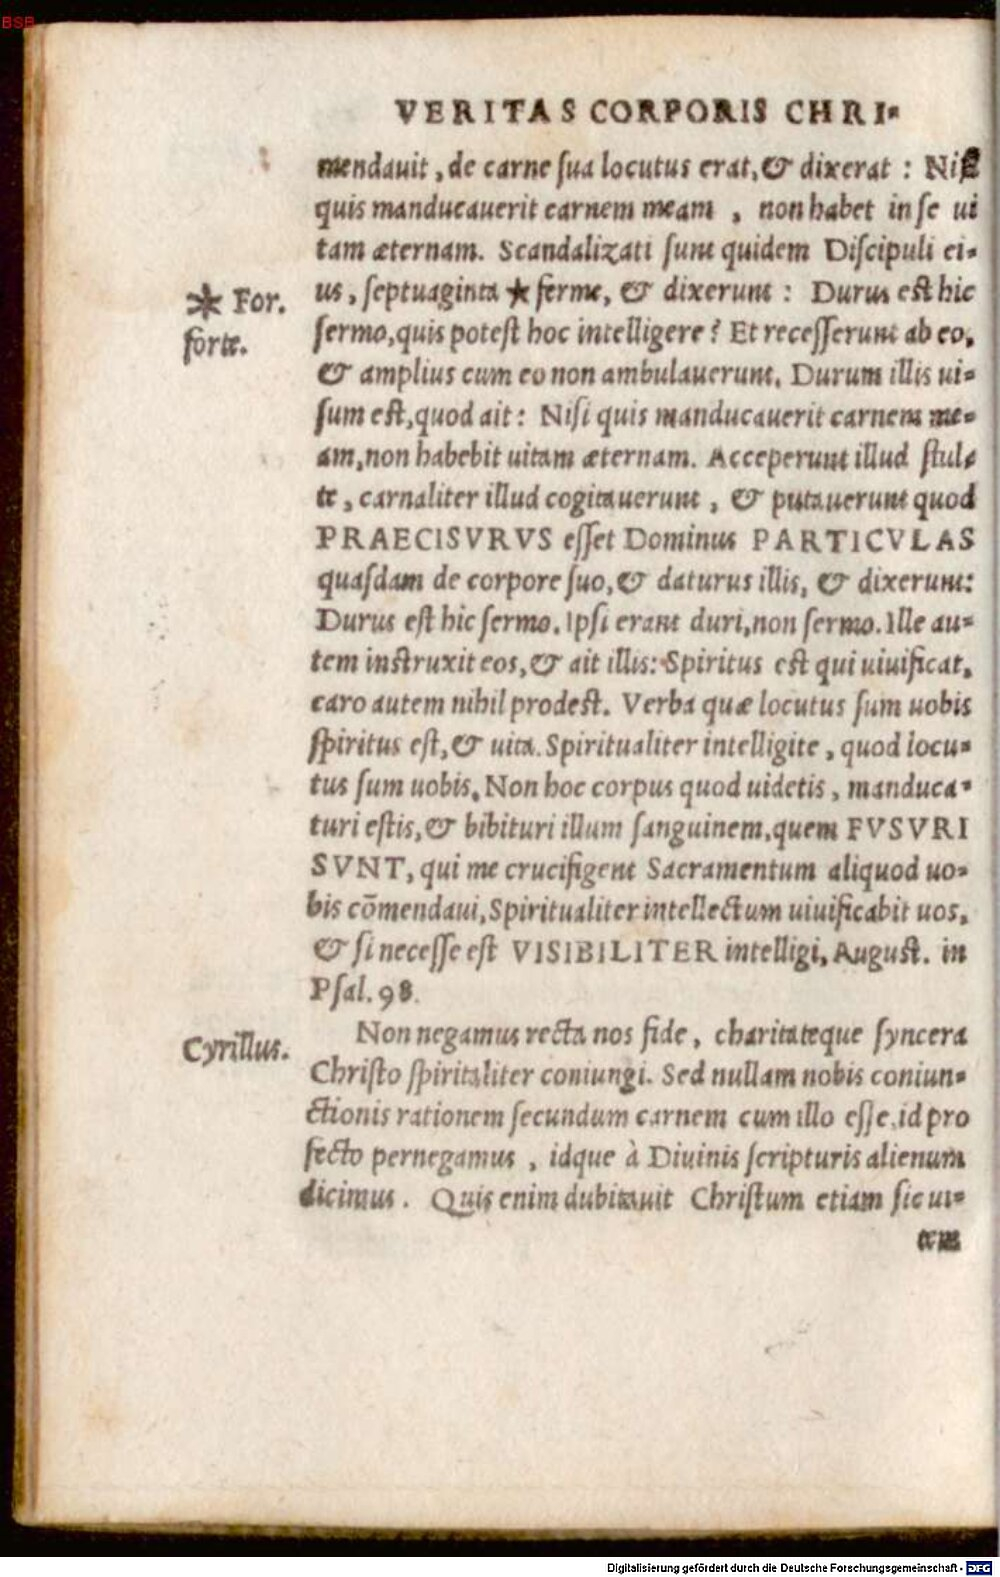 BSB
VERITAS CORPORIS CHRI-
mendauit, de carne ſua locutus erat, & dixerat : Niſi
quis manducauerit carnem meam , non habet in ſe ui
tam æternam. Scandalizati ſunt quidem Diſcipuli ei-
* For.
us, ſeptuaginta * ferme, & dixerunt : Durus est hic
forte.
ſermo, quis potest hoc intelligere? Et receſſerunt ab eo,
& amplius cum eo non ambulauerunt. Durum illis ui-
ſum est, quod ait: Niſi quis manducauerit carnem me-
am, non habebit uitam æternam. Acceperunt illud ſtul-
te, carnaliter illud cogitauerunt, & putauerunt quod
PRAECISVRVS eſſet Dominus PARTICVLAS
quaſdam de corpore ſuo, & daturus illis, & dixerunt:
Durus est hic ſermo. Ipſi erant duri, non ſermo. Ille au-
tem instruxit eos, & ait illis: Spiritus est qui uiuificat,
caro autem nihil prodest. Verba quæ locutus ſum uobis
ſpiritus eſt, & uita. Spiritualiter intelligite, quod locu-
tus ſum uobis. Non hoc corpus quod uidetis, manduca-
turi eſtis, & bibituri illum ſanguinem, quem FVSVRI
SVNT, qui me crucifigent Sacramentum aliquod uo-
bis cõmendaui, Spiritualiter intellectum uiuificabit uos,
& ſi neceſſe est VISIBILITER intelligi, Auguſt. in
Pſal. 98.
Cyrillus.
Non negamus recta nos fide, charitateque ſyncera
Chriſto ſpiritaliter coniungi. Sed nullam nobis coniun-
ctionis rationem ſecundum carnem cum illo eſſe, id pro
fecto pernegamus, idque à Diuinis ſcripturis alienum
dicimus. Quis enim dubitauit Chriſtum etiam ſic ui-
tem
Digitalisierung gefördert durch die Deutsche Forschungsgemeinschaft - DFG